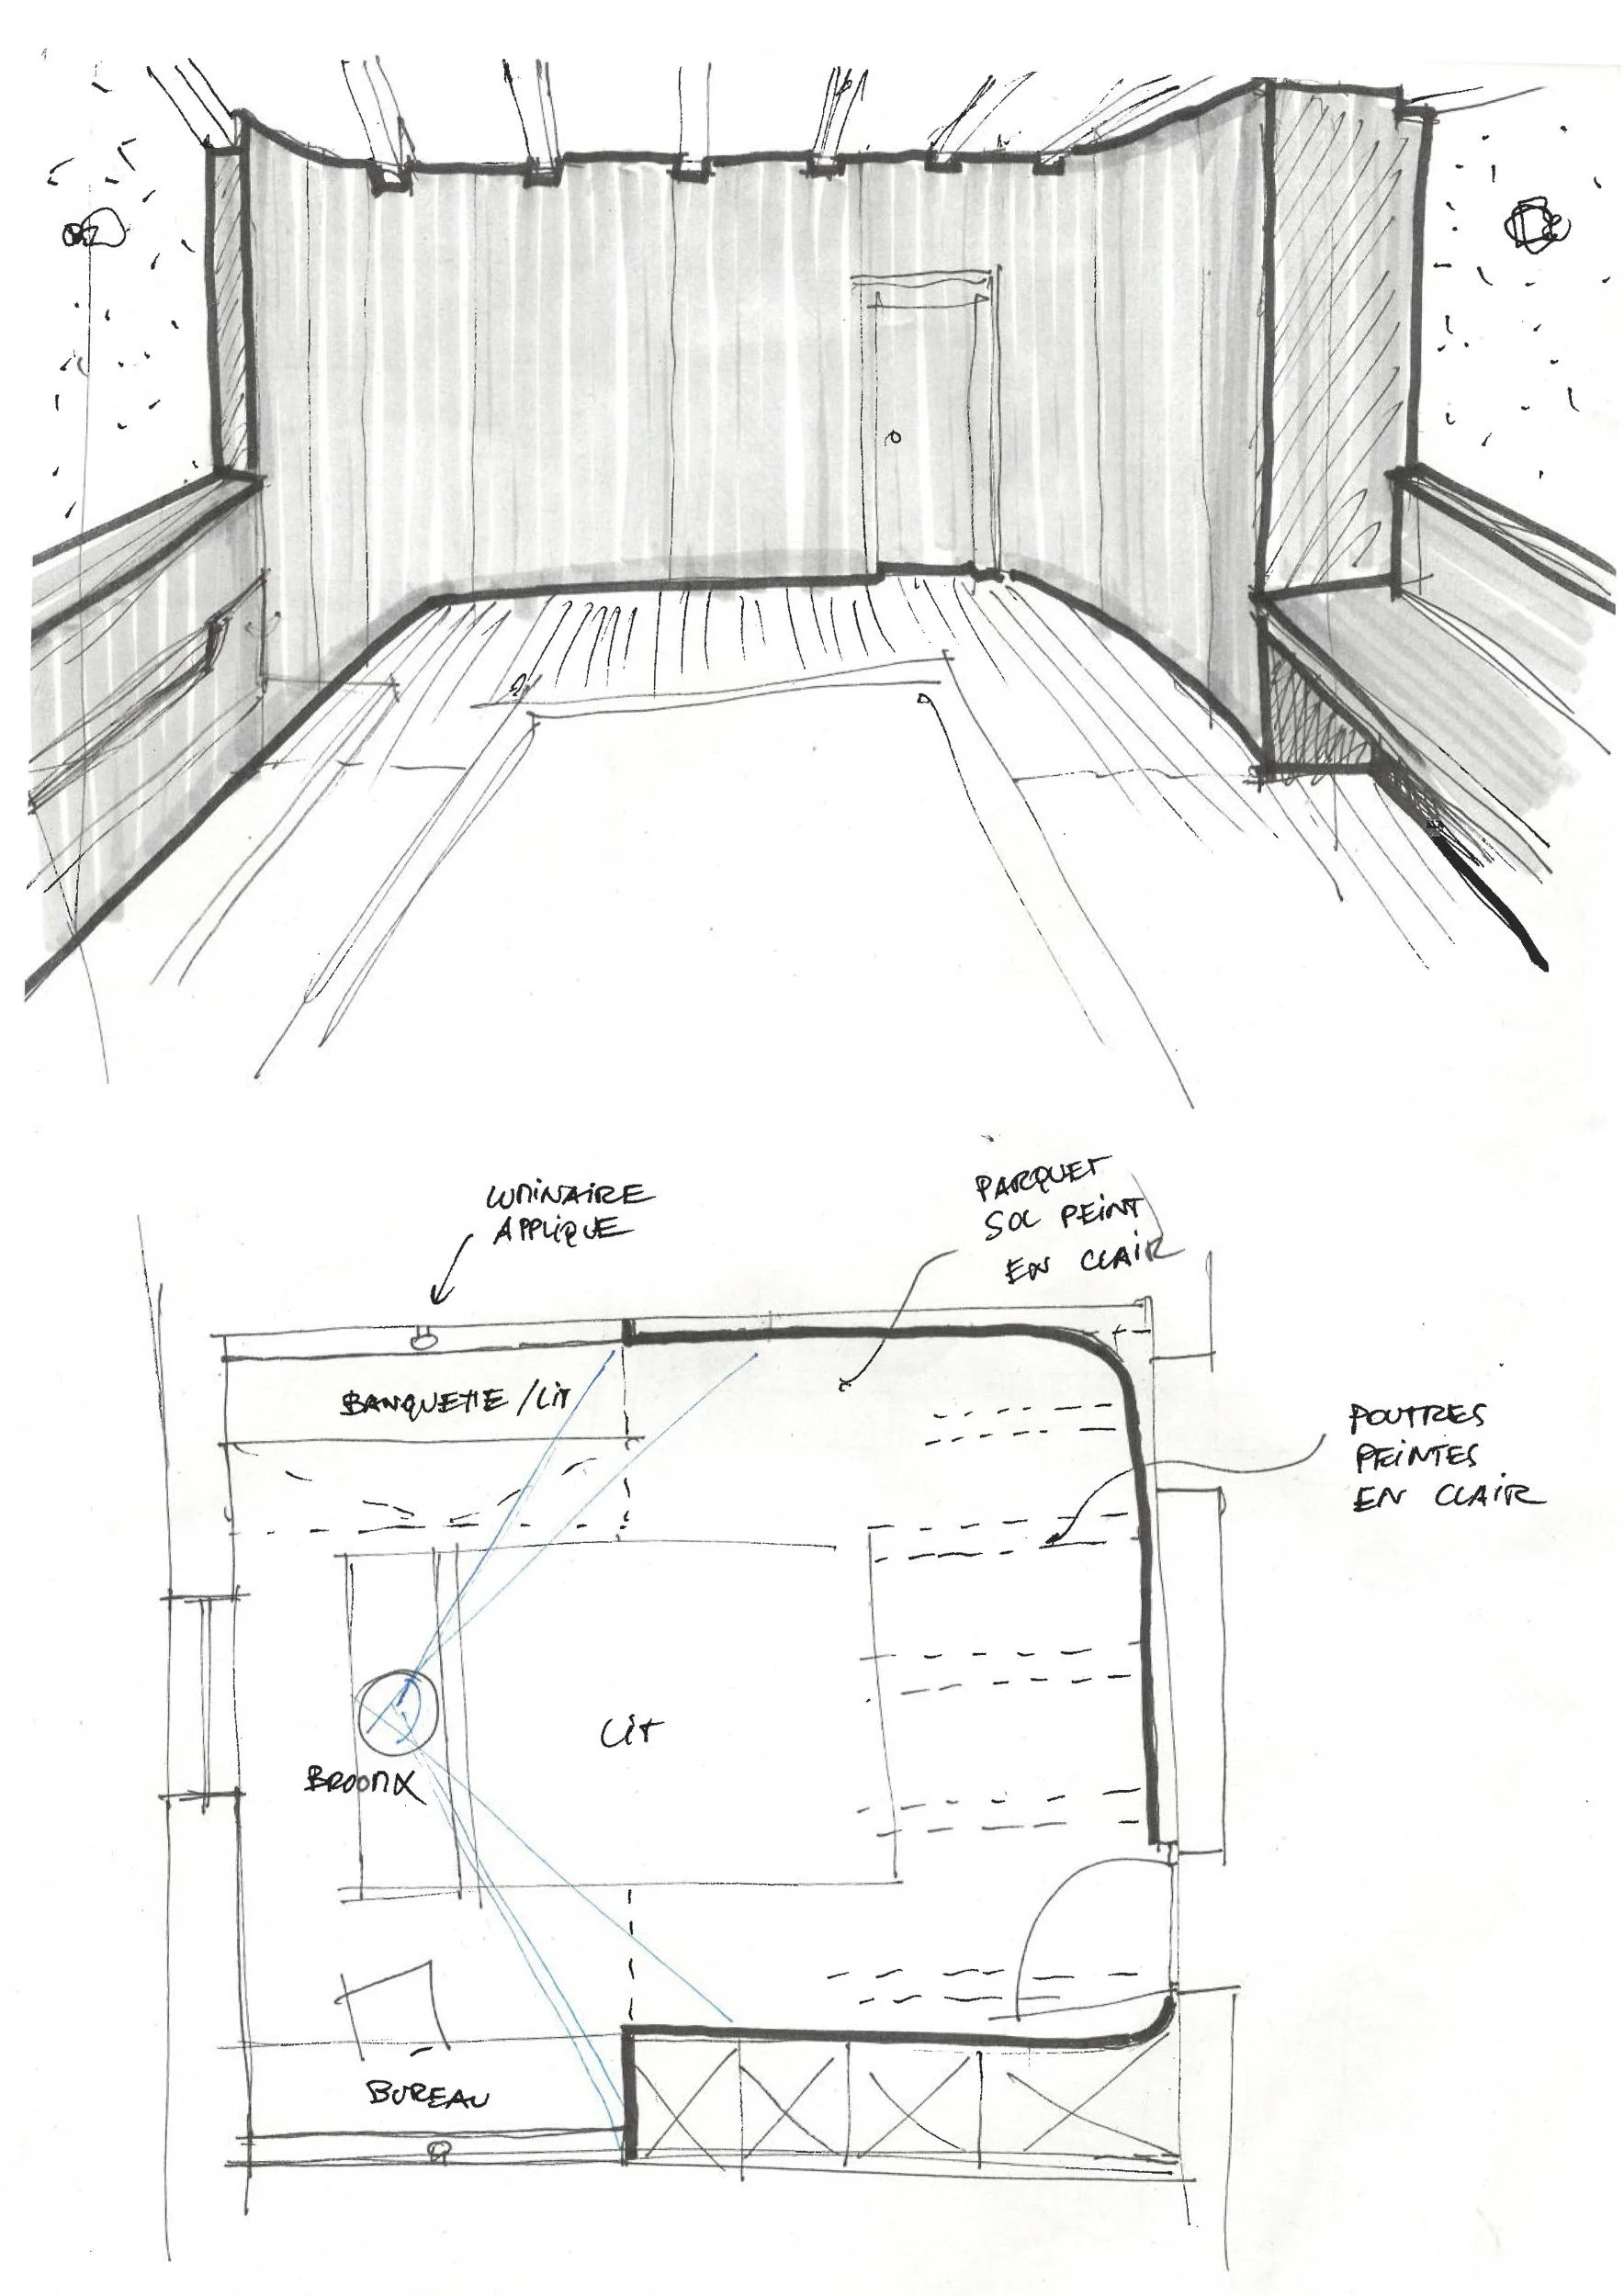 LUMINAIRE
APPLIQUE
PARQUET
SOL PEINT
EN CLAIR
BANQUETTE / LIT
POUTRES
PEINTES
EN CLAIR
LIT
BROOMX
BUREAU